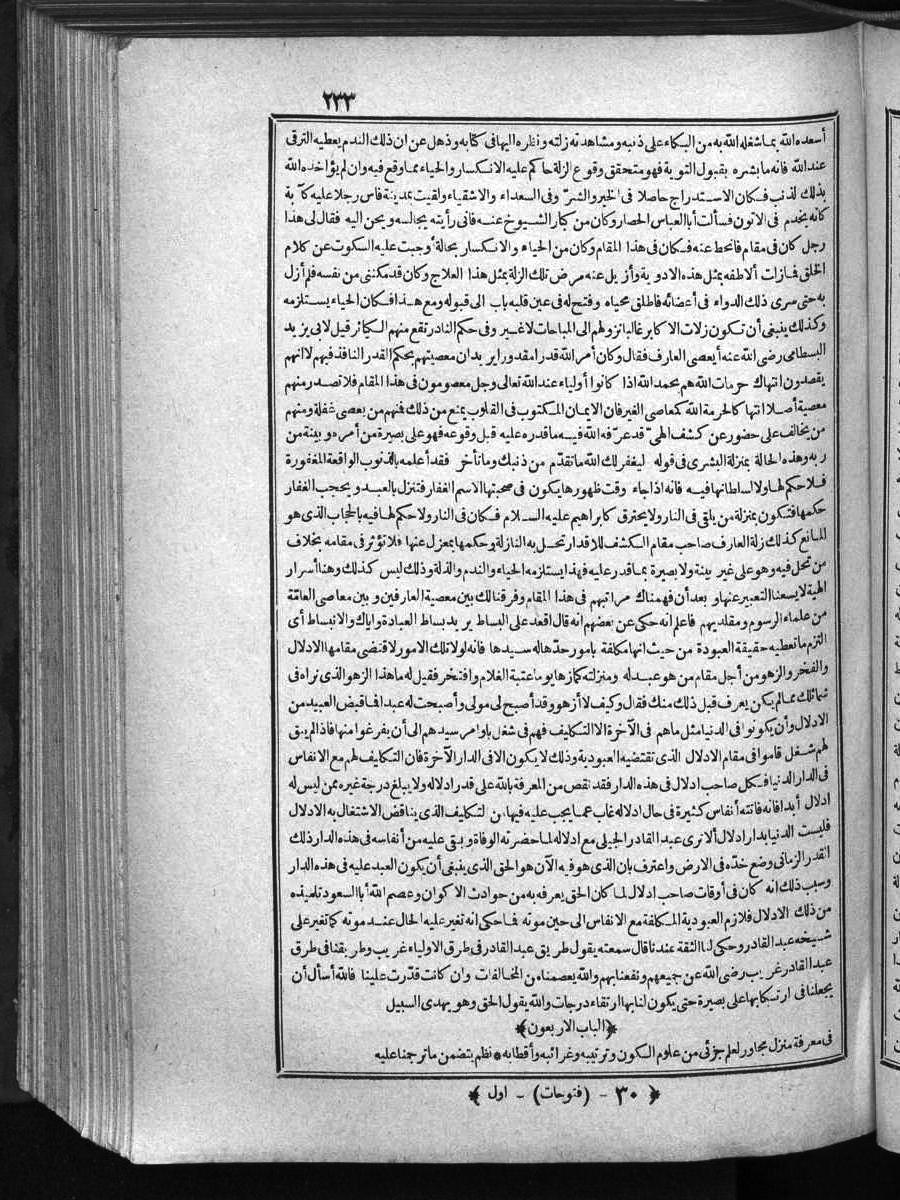 ٢٣٣
أسعده الله بما شغله الله به من البكاء على ذنبه ومشاهدته زلته ونظره اليها في كتابه وذهل عن ان ذلك الندم يعطيه الترقى
عند الله فانه ما بشره بقبول التوبة فهو متحقق وقوع الزلة حاكم عليه الانكسار والحياء مما وقع فيه وان لم يؤاخذه الله
بذلك الذنب فكان الاستدراج حاصلا فى الخير والشرّ وفى السعداء والاشقياء ولقيت بمدينة فاس رجلا عليه كآبة
كانه يخدم فى الاتون فسألت أبا العباس الحصار وكان من كبار الشيوخ عنه فانى رأيته يجالسه ويحن اليه فقال لى هذا
رجل كان فى مقام فانحط عنه فكان فى هذا المقام وكان من الحياء والانكسار بحالة أوجبت عليه السكوت عن كلام
الخلق فمازلت ألاطفه بمثل هذه الادوية وأزيل عنه مرض تلك الزلة بمثل هذا العلاج وكان قد مكننى من نفسه فلم أزل
به حتى سرى ذلك الدواء فى أعضائه فاطلق محياه وفتح له فى عين قلبه باب الى قبوله ومع هذا فكان الحياء يستلزمه
وكذلك ينبغى أن تكون زلات الاكابر غالبا نزولهم الى المباحات لا غير وفى حكم النادر تقع منهم الكبائر قيل لابى يزيد
البسطامى رضى الله عنه أيعصى العارف فقال وكان أمر الله قدرا مقدورا يريد ان معصيتهم بحكم القدر النافذ فيهم لا انهم
يقصدون انتهاك حرمات الله هم بحمد الله اذا كانوا أولياء عند الله تعالى وجل معصومون فى هذا المقام فلا تصدر منهم
معصية أصلا انتهاكا لحرمة الله كمعاصى الغير فان الايمان المكتوب فى القلوب يمنع من ذلك فمنهم من يعصى غفلة ومنهم
من يخالف على حضور عن كشف الهىّ قد عرّفه الله فيه ما قدره عليه قبل وقوعه فهو على بصيرة من أمره وبينة من
ربه وهذه الحالة بمنزلة البشرى فى قوله ليغفر لك الله ما تقدّم من ذنبك وما تأخر فقد أعلمه بالذنوب الواقعة المغفورة
فلا حكم لها ولا لسلطانها فيه فانه اذا جاء وقت ظهورها يكون فى صحبتها الاسم الغفار فتنزل بالعبد ويحجب الغفار
حكمها فتكون بمنزلة من يلقى فى النار ولا يحترق كابراهيم عليه السلام فكان فى النار ولا حكم لها فيه بالحجاب الذى هو
المانع كذلك زلة العارف صاحب مقام الكشف للاقدار تحل به النازلة وحكمها بمعزل عنها فلا تؤثر فى مقامه بخلاف
من تحل فيه وهو على غير بينة ولا بصيرة بما قدر عليه فهذا يستلزمه الحياء والندم والذلة وذلك ليس كذلك وهنا أسرار
الهية لا يسعنا التعبير عنها وبعد أن فهمناك مراتبهم فى هذا المقام وفرقنا لك بين معصية العارفين وبين معاصى العامّة
من علماء الرسوم ومقلديهم فاعلم انه حكى عن بعضهم انه قال اقعد على البساط يريد بساط العبادة واياك والانبساط أى
التزم ما تعطيه حقيقة العبودة من حيث انها مكلفة بامور حدّها له سيدها فانه لولا تلك الامور لاقتضى مقامها الادلال
والفخر والزهو من أجل مقام من هو عبد له ومنزلته كما زها يوما عتبة الغلام وافتخر فقيل له ما هذا الزهو الذى نراه فى
شمائلك مما لم يكن يعرف قبل ذلك منك فقال وكيف لا أزهو وقد أصبح لى مولى وأصبحت له عبدا فما قبض العبيد من
الادلال وأن يكونوا فى الدنيا مثل ما هم فى الآخرة الا التكليف فهم فى شغل باوامر سيدهم الى أن يفرغوا منها فاذا لم يبق
لهم شغل قاموا فى مقام الادلال الذى تقتضيه العبودية وذلك لا يكون الا فى الدار الآخرة فان التكليف لهم مع الانفاس
فى الدار الدنيا فكل صاحب ادلال فى هذه الدار فقد نقص من المعرفة بالله على قدر ادلاله ولا يبلغ درجة غيره ممن ليس له
ادلال أبدا فانه فاتته أنفاس كثيرة فى حال ادلاله غاب عما يجب عليه فيها من التكليف الذى يناقض الاشتغال به الادلال
فليست الدنيا بدار ادلال ألا ترى عبد القادر الجيلى مع ادلاله لما حضرته الوفاة وبقى عليه من أنفاسه فى هذه الدار ذلك
القدر الزمانى وضع خدّه فى الارض واعترف بان الذى هو فيه الآن هو الحق الذى ينبغى أن يكون العبد عليه فى هذه الدار
وسبب ذلك انه كان فى أوقات صاحب ادلال لما كان الحق يعرفه به من حوادث الاكوان وعصم الله أبا السعود تلميذه
من ذلك الادلال فلازم العبودية المكلفة مع الانفاس الى حين موته فما حكى انه تغير عليه الحال عند موته كما تغير على
شيخه عبد القادر وحكى لنا الثقة عندنا قال سمعته يقول طريق عبد القادر فى طرق الاولياء غريب وطريقنا فى طرق
عبد القادر غريب رضى الله عن جميعهم ونفعنا بهم والله يعصمنا من المخالفات وان كانت قدّرت علينا فالله أسأل أن
يجعلنا فى ارتكابها على بصيرة حتى يكون لنا بها ارتقاء درجات والله يقول الحق وهو يهدى السبيل
﴿الباب الاربعون﴾
فى معرفة منزل مجاور لعلم جزئى من علوم الكون وترتيبه وغرائبه وأقطابه * نظم يتضمن ما ترجمنا عليه
﴿ ٣٠ - (فتوحات) - اول ﴾